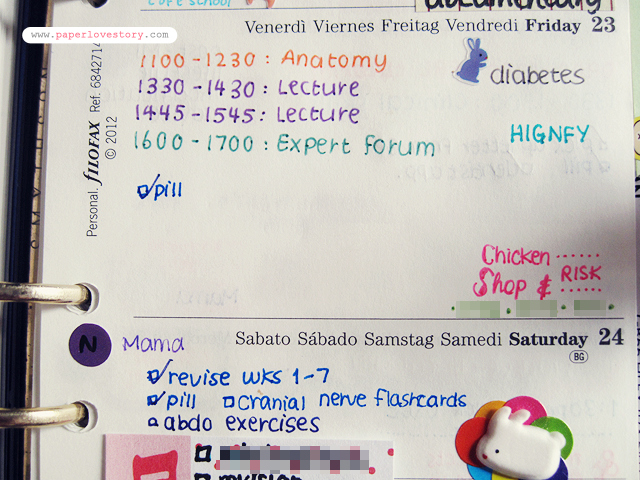 cafe school
documentary
www.paperlovestory.com
Venerdì Viernes Freitag Vendredi Friday 23
1100-1230: Anatomy
diabetes
1330-1430: Lecture
1445-1545: Lecture
HIGNFY
1600-1700: Expert Forum
pill
Personal. FILOFAX Ref. 6842714
© 2012
Chicken ......
Shop & RISK
N Mama
Sabato Sábado Samstag Samedi Saturday 24
BG
revise wks 1-7
pill cranial nerve flashcards
abdo exercises
revision